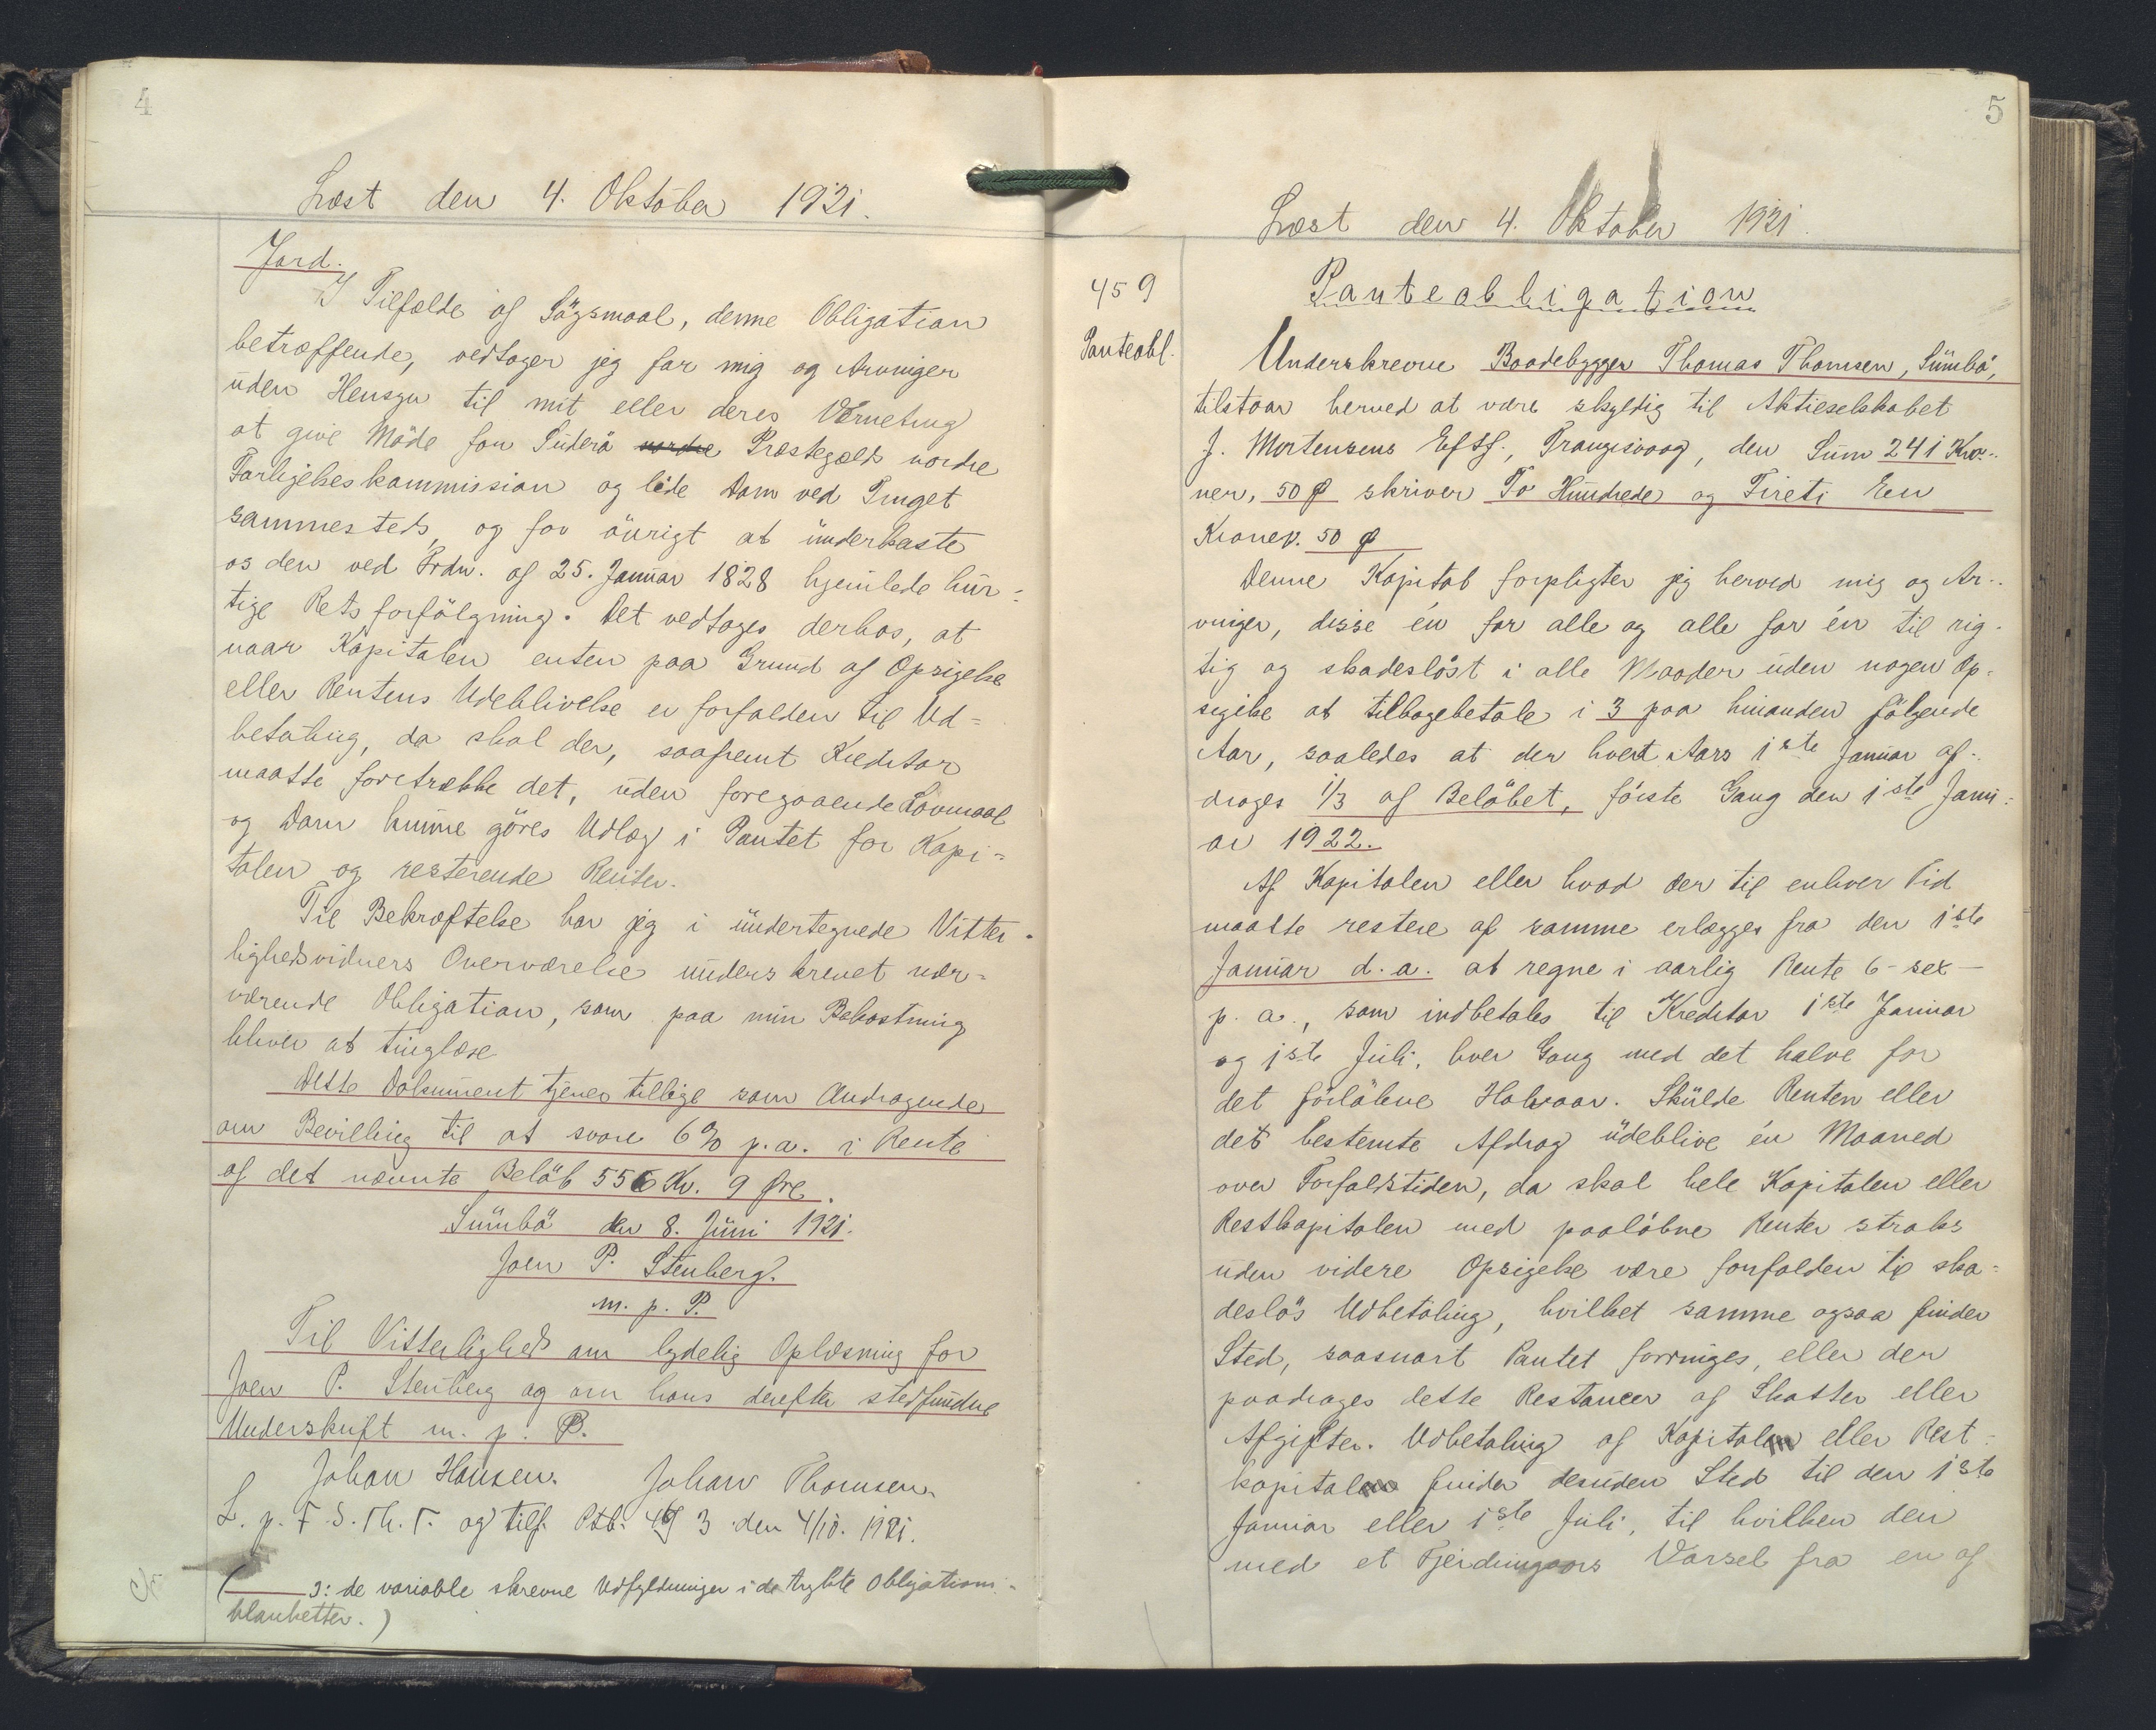 4
Læst den 4. Oktober 1921.
Jord.
I Tilfælde af Sögsmaal, denne Obligation
betræffende, vedtager jeg for mig og Arvinger
uden Hensyn til mit eller deres Værneting
at give Möde for Suderö nordre Præstegælds nordre
Forligelseskommission og lide Dom ved Tinget
sammesteds, og for övrigt at underkaste
os den ved Frdn. af 25. Januar 1828 hjemlede hur=
tige Retsforfölgning. Det vedtages derhos, at
naar Kapitalen enten paa Grund af Opsigelse
eller Rentens Udeblivelse er forfalden til Ud=
betaling, da skal der, saafremt Kreditor
maatte foretrække det, uden foregaaende Lovmaal
og Dom kunne göres Udlæg i Pantet for Kapi=
talen og resterende Renter.
Til Bekræftelse har jeg i undertegnede Vitter-
lighedsvidners Overværelse underskrevet nær=
værende Obligation, som paa min Bekostning
bliver at tinglæse
Dette Dokument tjener tillige som Andragende
om Bevilling til at svare 6% p.a. i Rente
af det nævnte Belöb 556 Kr. 9 Øre.
Sumbö den 8. Juni 1921.
Joen P. Stenberg.
m. p. P.
Til Vitterlighed om lydelig Oplæsning for
Joen P. Stenberg og om hans derefter stedfundne
Underskrift m. p. P.
Johan Hansen. Johan Thomsen.
L. p. F. S. Th. T. og tilf. Ptb. 3 den 4/10. 1921.
( ɔ: de variable skrevne Udfyldninger i de trykte Obligations-
blanketter.)
5
Læst den 4. Oktober 1921.
459
Panteobl.
Panteobligation
Underskrevne Baadebygger Thomas Thomsen, Sumbö,
tilstaar herved at være skyldig til Aktieselskabet
J. Mortensens Eftf., Trangisvaag, den Sum 241 Kro-
ner, 50 Ø skriver To Hundrede og Fireti En
Kroner. 50 Ø
Denne Kapital forpligter jeg herved mig og Ar-
vinger, disse én for alle og alle for én til rig-
tig og skadeslöst i alle Maader uden nogen Op-
sigelse at tilbagebetale i 3 paa hinanden fölgende
Aar, saaledes at der hvert Aars 1ste Januar af-
drages 1/3 af Belöbet, förste Gang den 1ste Janu=
ar 1922.
Af Kapitalen eller hvad der til enhver Tid
maatte restere af samme erlægges fra den 1ste
Januar d. a. at regne i aarlig Rente 6 - sex -
p. a., som indbetales til Kreditor 1ste Januar
og 1ste Juli, hver Gang med det halve for
det forlöbne Halvaar. Skulde Renten eller
det bestemte Afdrag udeblive én Maaned
over Forfaldstiden, da skal hele Kapitalen eller
Restkapitalen med paalöbne Renter straks
uden videre Opsigelse være forfalden til ska=
deslös Udbetaling, hvilket samme ogsaa finder
Sted, saasnart Pantet forringes, eller der
paadrages dette Restancer af Skatter eller
Afgifter. Udbetaling af Kapitalen eller Rest-
kapitalen finder desuden Sted til den 1ste
Januar eller 1ste Juli, til hvilken den
med et Fjerdingaars Varsel fra en af